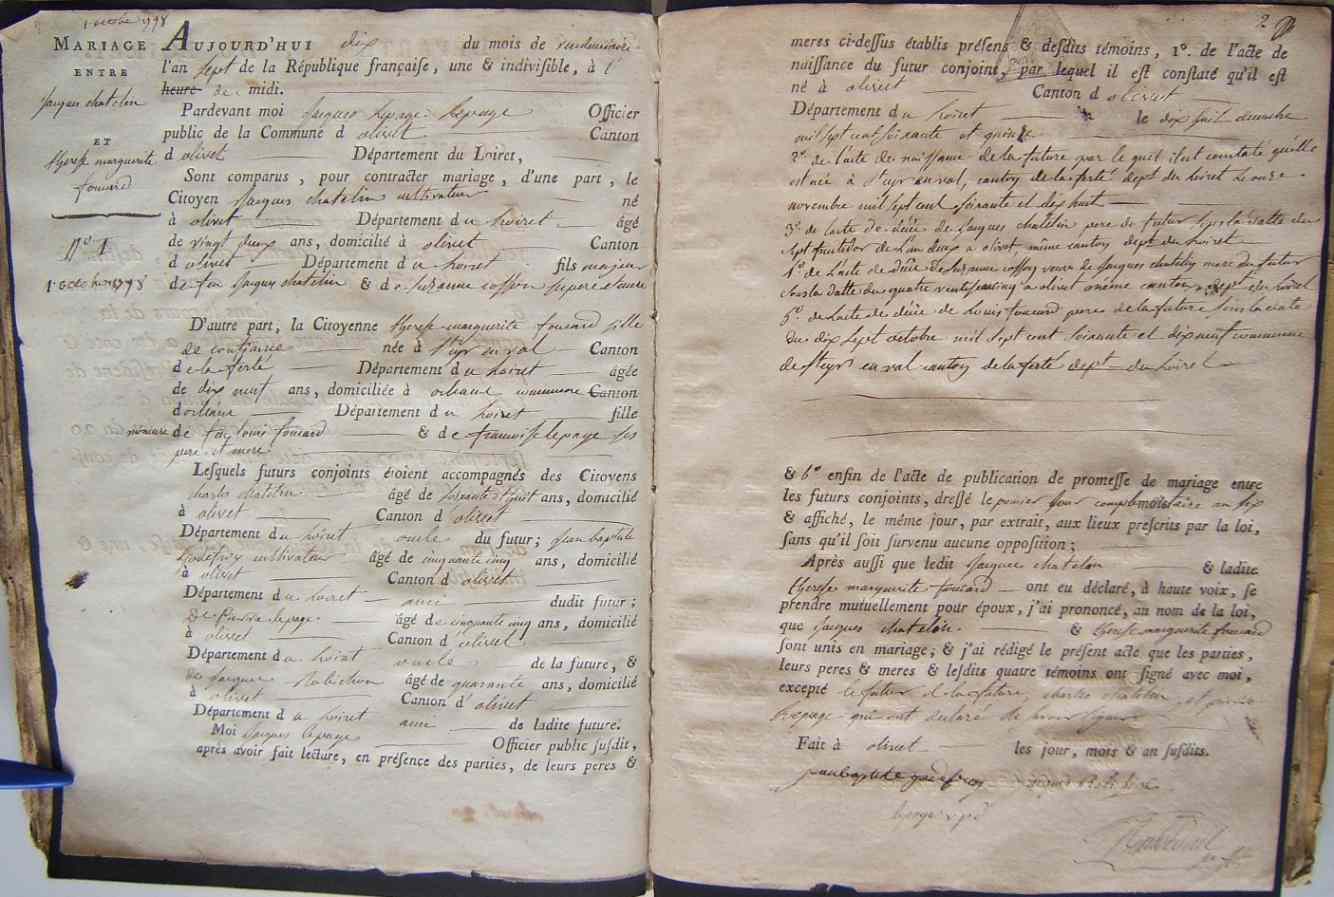 1 octobre 1798
MARIAGE
ENTRE
Jacques chatelin
ET
therese marguerite
foucard
N.º 1
1 octobre 1798
AUJOURD'HUI dix du mois de vendemiaire
l'an sept de la République françaiſe, une & indiviſible, à l'
heure de midi.
Pardevant moi Jacques Lepage Officier
public de la Commune d olivet Canton
d olivet Département du Loiret,
Sont comparus, pour contracter mariage, d'une part, le
Citoyen Jacques chatelin cultivateur né
à olivet Département du Loiret âgé
de vingt deux ans, domicilié à olivet Canton
d olivet Département du Loiret fils majeur
de feu Jacques chatelin & de Suzanne
D'autre part, la Citoyenne therese marguerite foucard fille
de confiance née à St cyr en val Canton
de la ferté Département du Loiret âgée
de dix neuf ans, domiciliée à orleans commune Canton
dorleans Département du Loiret fille
mineure de feu louis foucard & de francoise lepage ses
pere et mere
Leſquels futurs conjoints étoient accompagnés des Citoyens
charles chatelin âgé de soixante et huit ans, domicilié
à olivet Canton d olivet
Département du Loiret oncle du futur; Jean baptiste
Godefroy cultivateur âgé de cinquante cinq ans, domicilié
à olivet Canton d olivet
Département du Loiret ami dudit futur;
De Pierre lepage âgé de cinquante cinq ans, domicilié
à olivet Canton d olivet
Département du Loiret oncle de la future, &
de Jacques Robichon âgé de quarante ans, domicilié
à olivet Canton d olivet
Département du Loiret ami de ladite future.
Moi Jacques lepage Officier public ſuſdit,
après avoir fait lecture, en préſence des parties, de leurs peres &
2
meres ci-deſſus établis préſens & deſdits témoins, 1º. de l'acte de
naiſſance du futur conjoint, par lequel il eſt conſtaté qu'il eſt
né à olivet Canton d olivet
Département du Loiret le dix huit
mil sept cent soixante et quinze
2º. de l'acte de naissance de la future par lequel il est constaté quelle
est née à St cyr en val, canton de la ferté dept du Loiret le onze
novembre mil sept cent soixante et dix huit
3º. de l'acte de décès de Jacques chatelin pere du futur sous la datte du
sept fructidor de l'an deux a olivet, même canton dept du Loiret
4º. de l'acte de décès de Suzanne veuve de Jacques chatelin mere du futur
sous la datte du quatre a olivet même canton dept du Loiret
5º. de l'acte de décès de Louis foucard pere de la future sous la date
du dix sept octobre mil sept cent soixante et dix neuf commune
de St cyr en val canton de la ferté dept du Loiret
& 6º enfin de l'acte de publication de promeſſe de mariage entre
les futurs conjoints, dreſſé le premier jour complémentaire an six
& affiché, le même jour, par extrait, aux lieux preſcrits par la loi,
ſans qu'il ſoit ſurvenu aucune oppoſition;
Après auſſi que ledit Jacques chatelin & ladite
therese marguerite foucard ont eu déclaré, à haute voix, ſe
prendre mutuellement pour époux, j'ai prononcé, au nom de la loi,
que Jacques chatelin & therese marguerite foucard
ſont unis en mariage; & j'ai rédigé le préſent acte que les parties,
leurs peres & meres & leſdits quatre témoins ont ſigné avec moi,
excepté le futur & la future, charles chatelin et pierre
Lepage qui ont declaré ne savoir signer
Fait à olivet les jour, mois & an ſuſdits.
jean baptiste godefroy Jacques Robichon